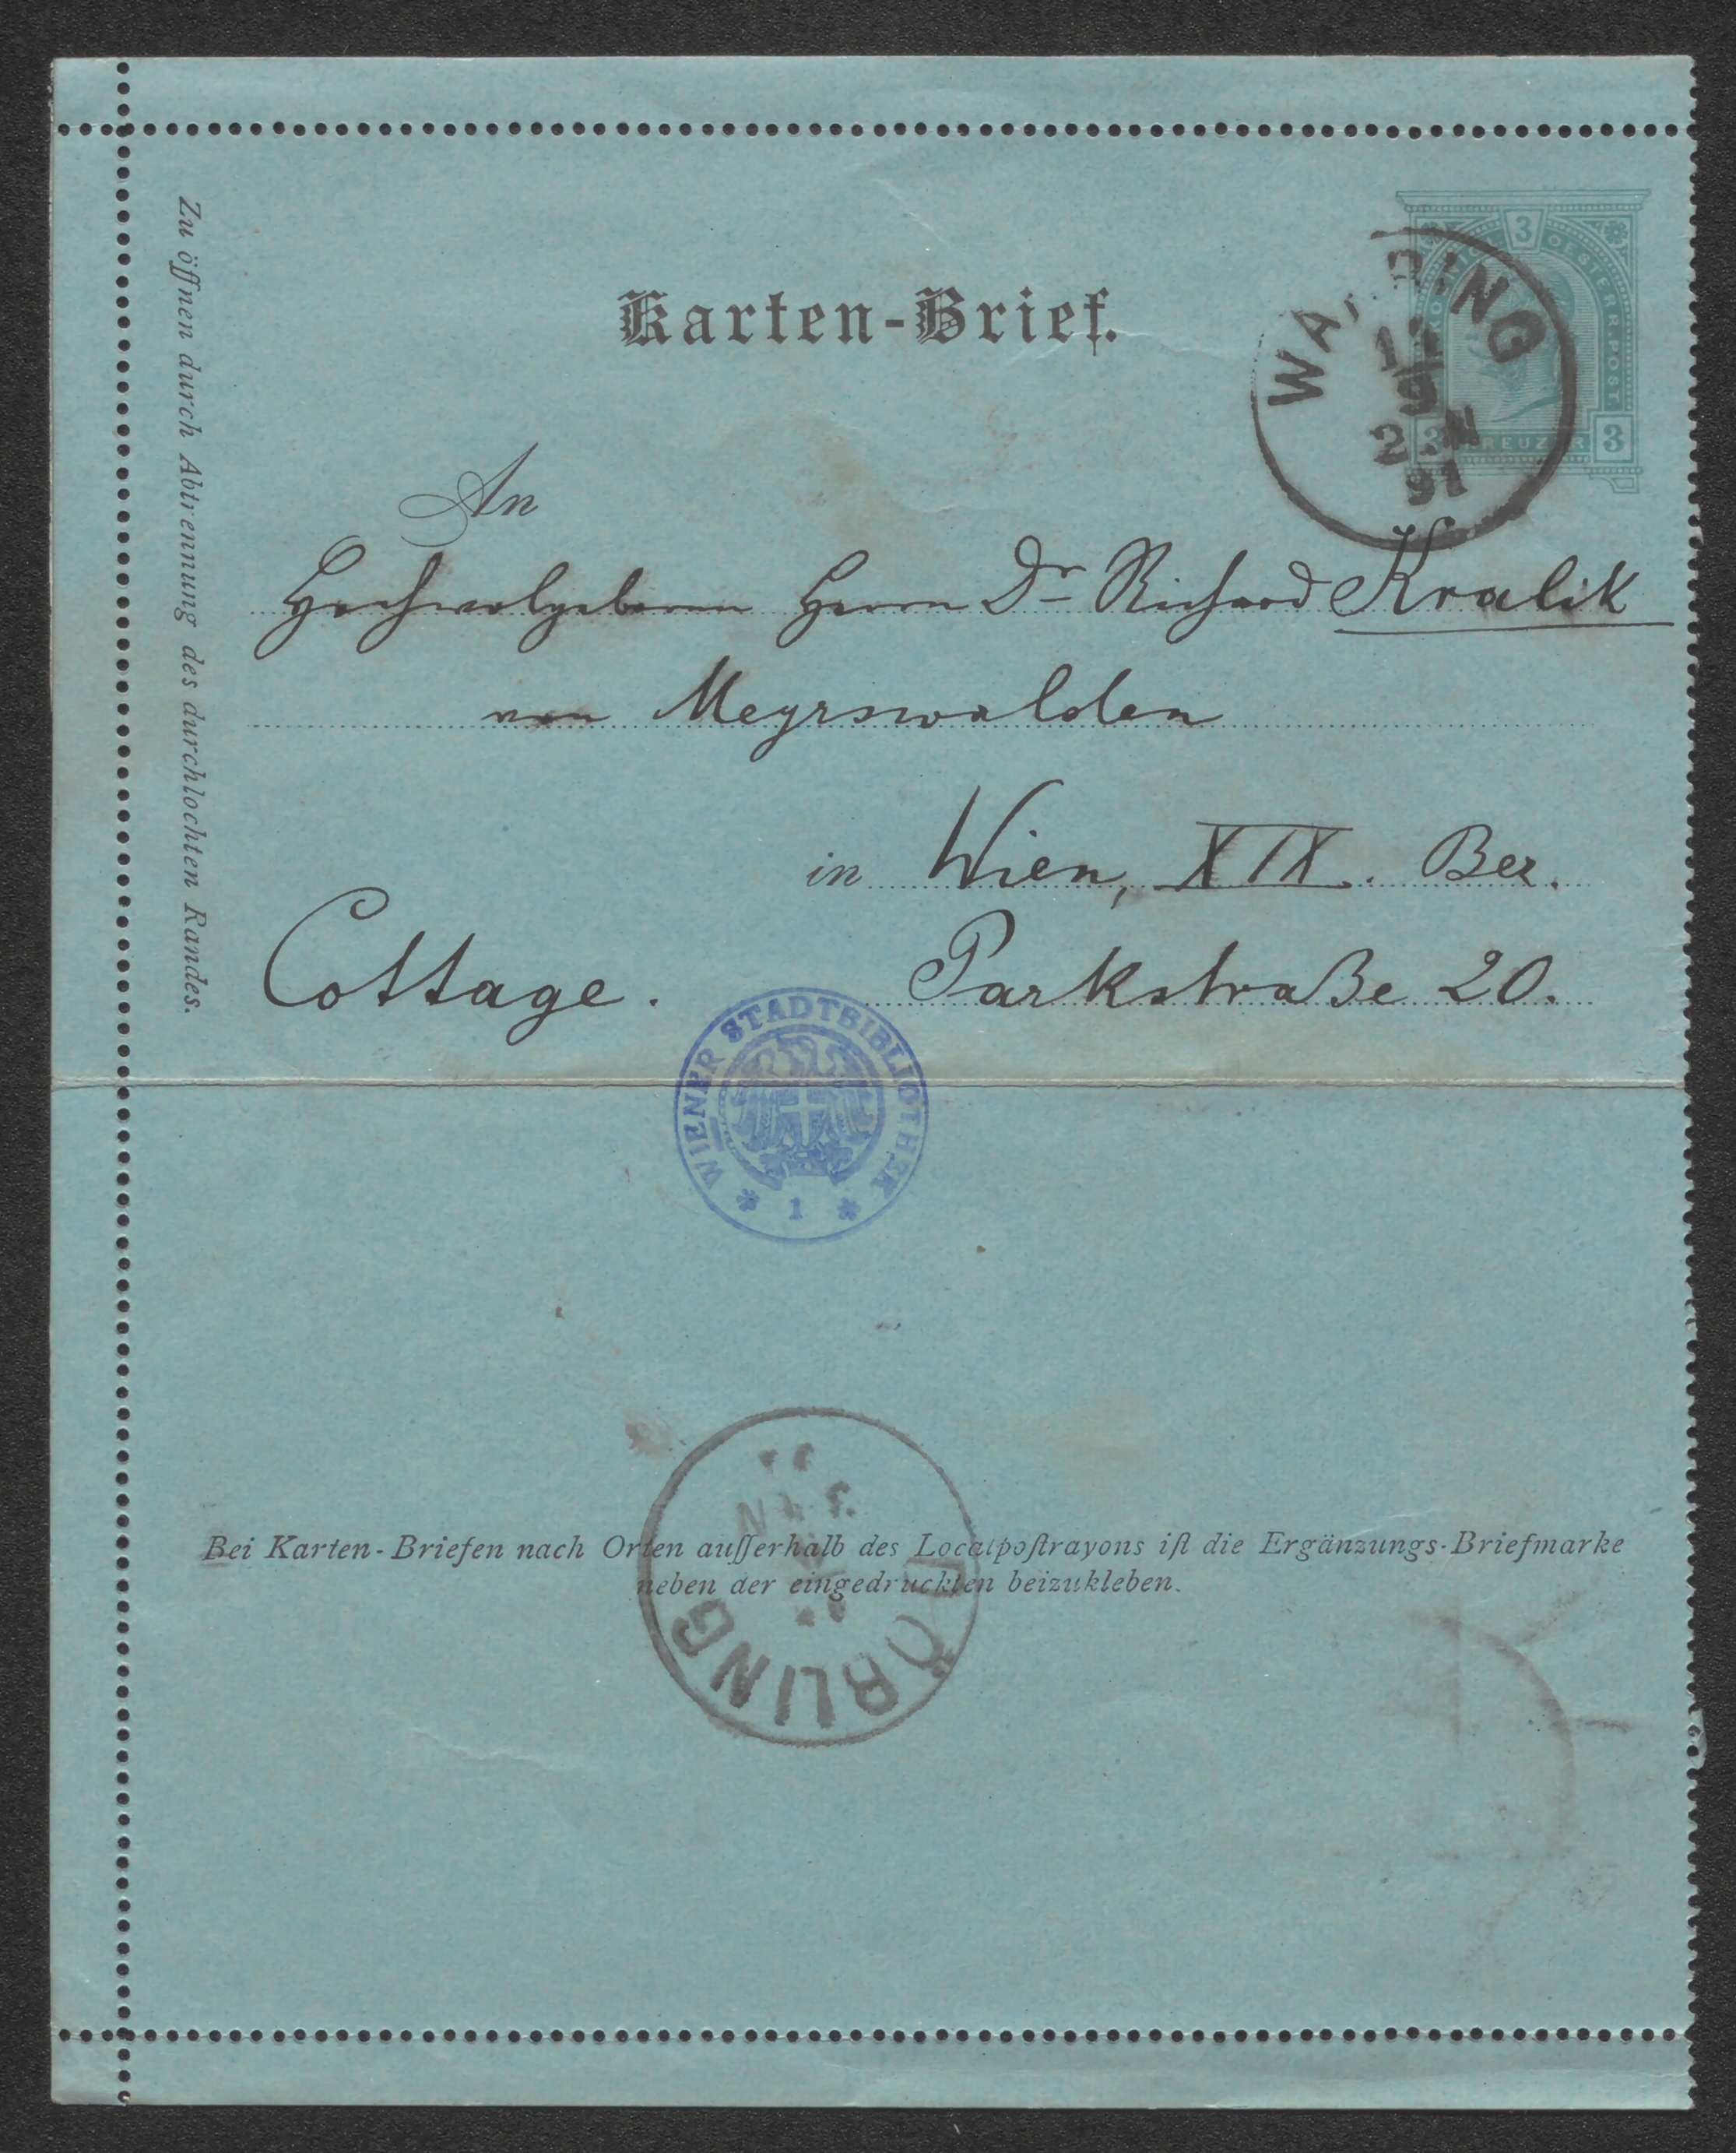 Karten-Brief.
3
OESTERR. POST
3 KREUZER 3
WA RING
11
9
2 N
91
An
Hochwolgeboren Herrn Dr Richard Kralik
von Meyrswalden
in Wien, XIX. Bez.
Cottage. Parkstraße 20.
Zu öffnen durch Abtrennung des durchlochten Randes.
WIENER STADTBIBLIOTHEK
* 1 *
Bei Karten-Briefen nach Orten auſſerhalb des Localpoſtrayons iſt die Ergänzungs-Briefmarke
neben der eingedruckten beizukleben.
ÖBLING